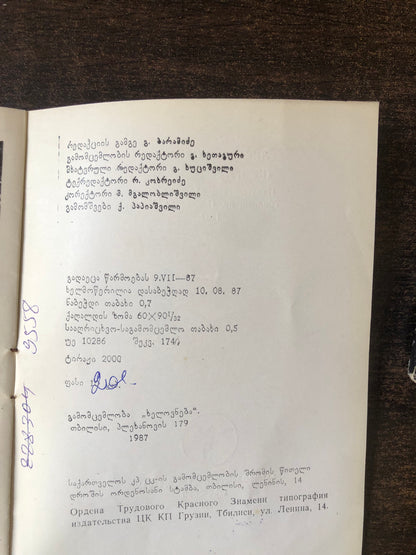 რედაქციის გამგე გ. ბარამიძე
გამომცემლობის რედაქტორი გ. ხეთაგური
მხატვრული რედაქტორი გ. ხუციშვილი
ტექრედაქტორი რ. კობრეიძე
კორექტორი მ. მგალობლიშვილი
გამომშვები ქ. პაპიაშვილი
გადაეცა წარმოებას 9.VII—87
ხელმოწერილია დასაბეჭდად 10. 08. 87
ნაბეჭდი თაბახი 0,7
ქაღალდის ზომა 60×90¹/₃₂
სააღრიცხვო-საგამომცემლო თაბახი 0,5
უე 10286 შეკვ. 1740
ტირაჟი 2000
ფასი
გამომცემლობა „ხელოვნება“.
თბილისი, პლეხანოვის 179
1987
საქართველოს კპ ცკ-ის გამომცემლობის შრომის წითელი
დროშის ორდენოსანი სტამბა, თბილისი, ლენინის, 14
Ордена Трудового Красного Знамени типография
издательства ЦК КП Грузии, Тбилиси, ул. Ленина, 14.